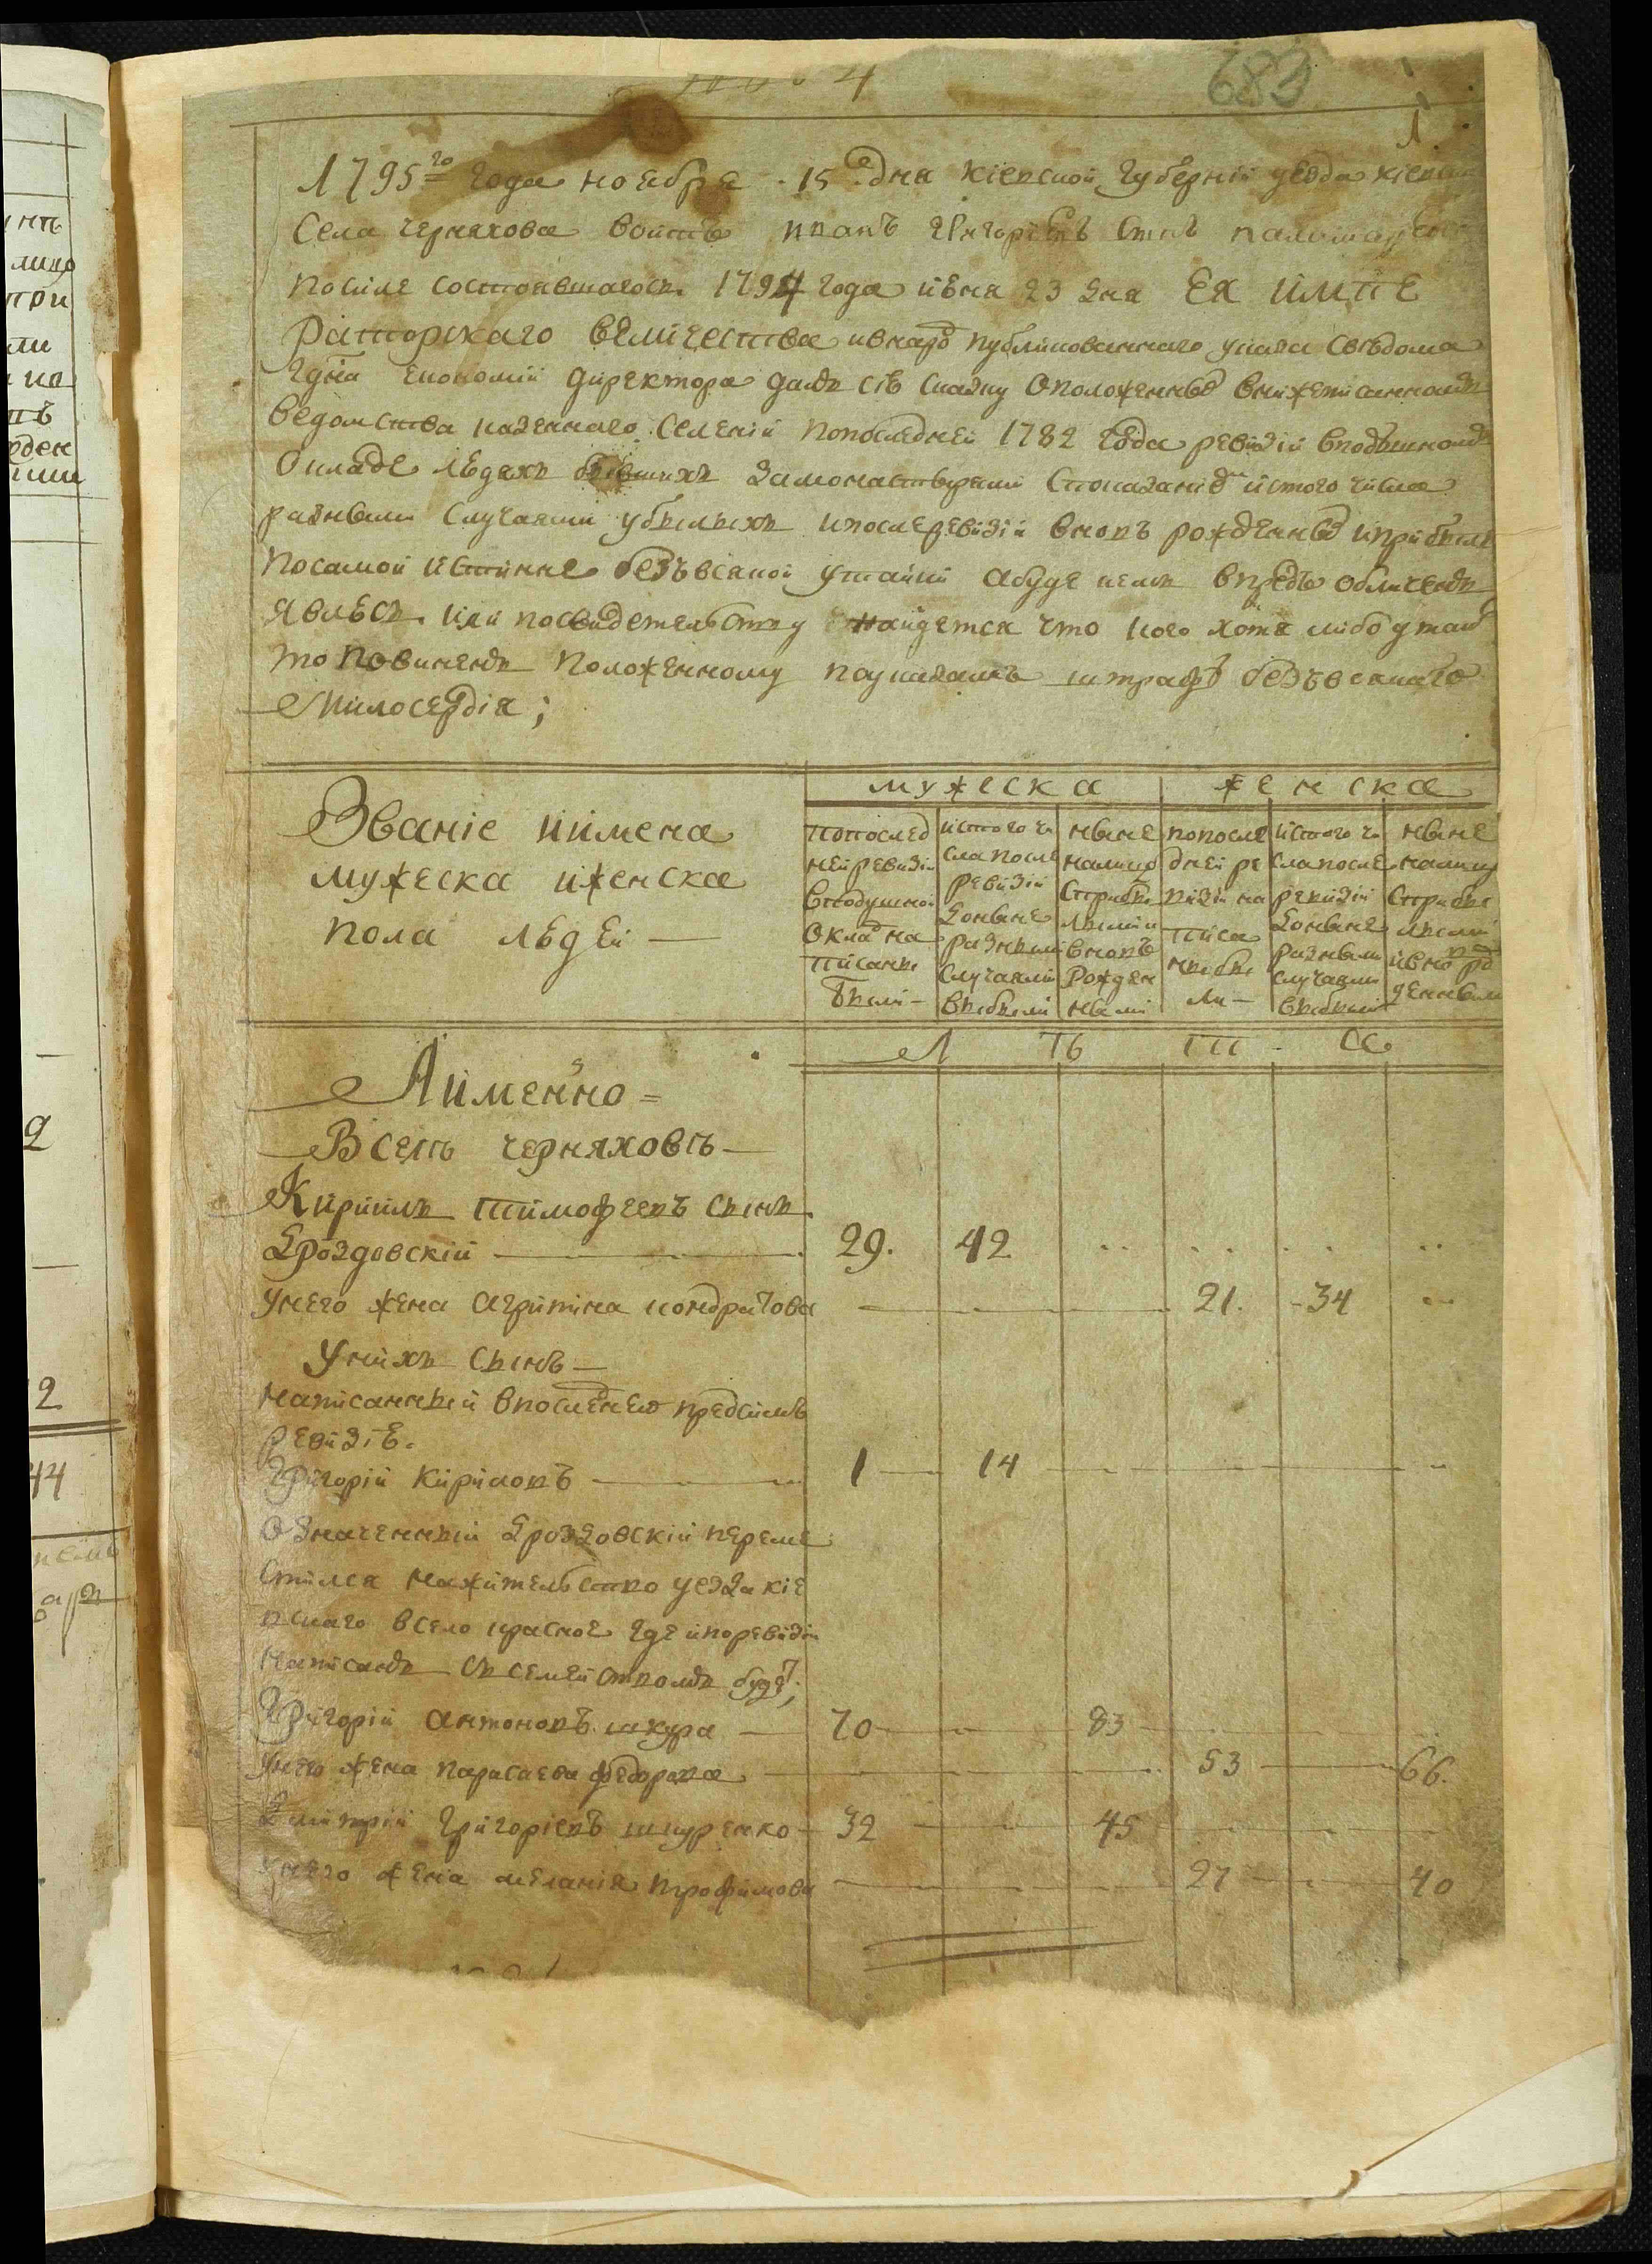 4
683
1
1795го года ноебря 15 дня кіевской губерній уезда кіевск
села черняхова войтъ иванъ григоріевъ сынъ
посиле состоявшагося 1794 года июня 23 дня ЕЯ ИМПЕ
Раторскаго величества ивнарод публикованнаго указа сведома
гдна економіи директора далъ сію сказку оположенныхъ внижеписанномъ
ведомства казенного селеній попоследней 1782 года ревизіи вподушномъ
окладе людяхъ бывшихъ замонастырями спаказаніемъ истого числа
разными случаями убылыхъ ипослеревизіи вновь рожденныхъ иприбыл
посамой истинне безъвсякой утайки абуде кемъ впредь обличенъ
явлюсь или посвидетельству найдется что кого хотя либо утаил
то повиненъ положенному поуказамъ штрафу безъвсякаго
милосердія;
Званіе иимена
мужеска иженска
пола людей —
мужеска
женска
попослед
ней ревизіи
вподушной
оклад на
писаны
были —
истого чи
сла после
ревизіи
доныне
разными
случаями
выбыли
ныне
налицо
сприбы
лыми и
вновь
рожден
ными
попосле
дней ре
визіи на
писа
ны бы
ли —
истого чи
сла после
ревизіи
доныне
разными
случаями
выбыли
ныне
налицо
сприбы
лыми
ивно рож
денными
Л ѣ т а
Аименно =
Вселѣ черняховѣ —
Кирилъ тимофеевъ сынъ
Дроздовскій — 29. 42
унего жена агрипина кондратова 21. 34
Унихъ сынъ —
написанный впоследнею предсимъ
ревизіе.
Григорій Кириловъ — 1 14
означенный дроздовскій переме
стился нажительство уезда кіе
вскаго всело красное где ипоревизіи
написанъ съ семействомъ будет;
Григорій антоновъ шкура — 70 83
унего жена параскева федорова 53 66.
Дмитрій григоріевъ шкуренко 32 45
унего жена меланія трофимова 27 40